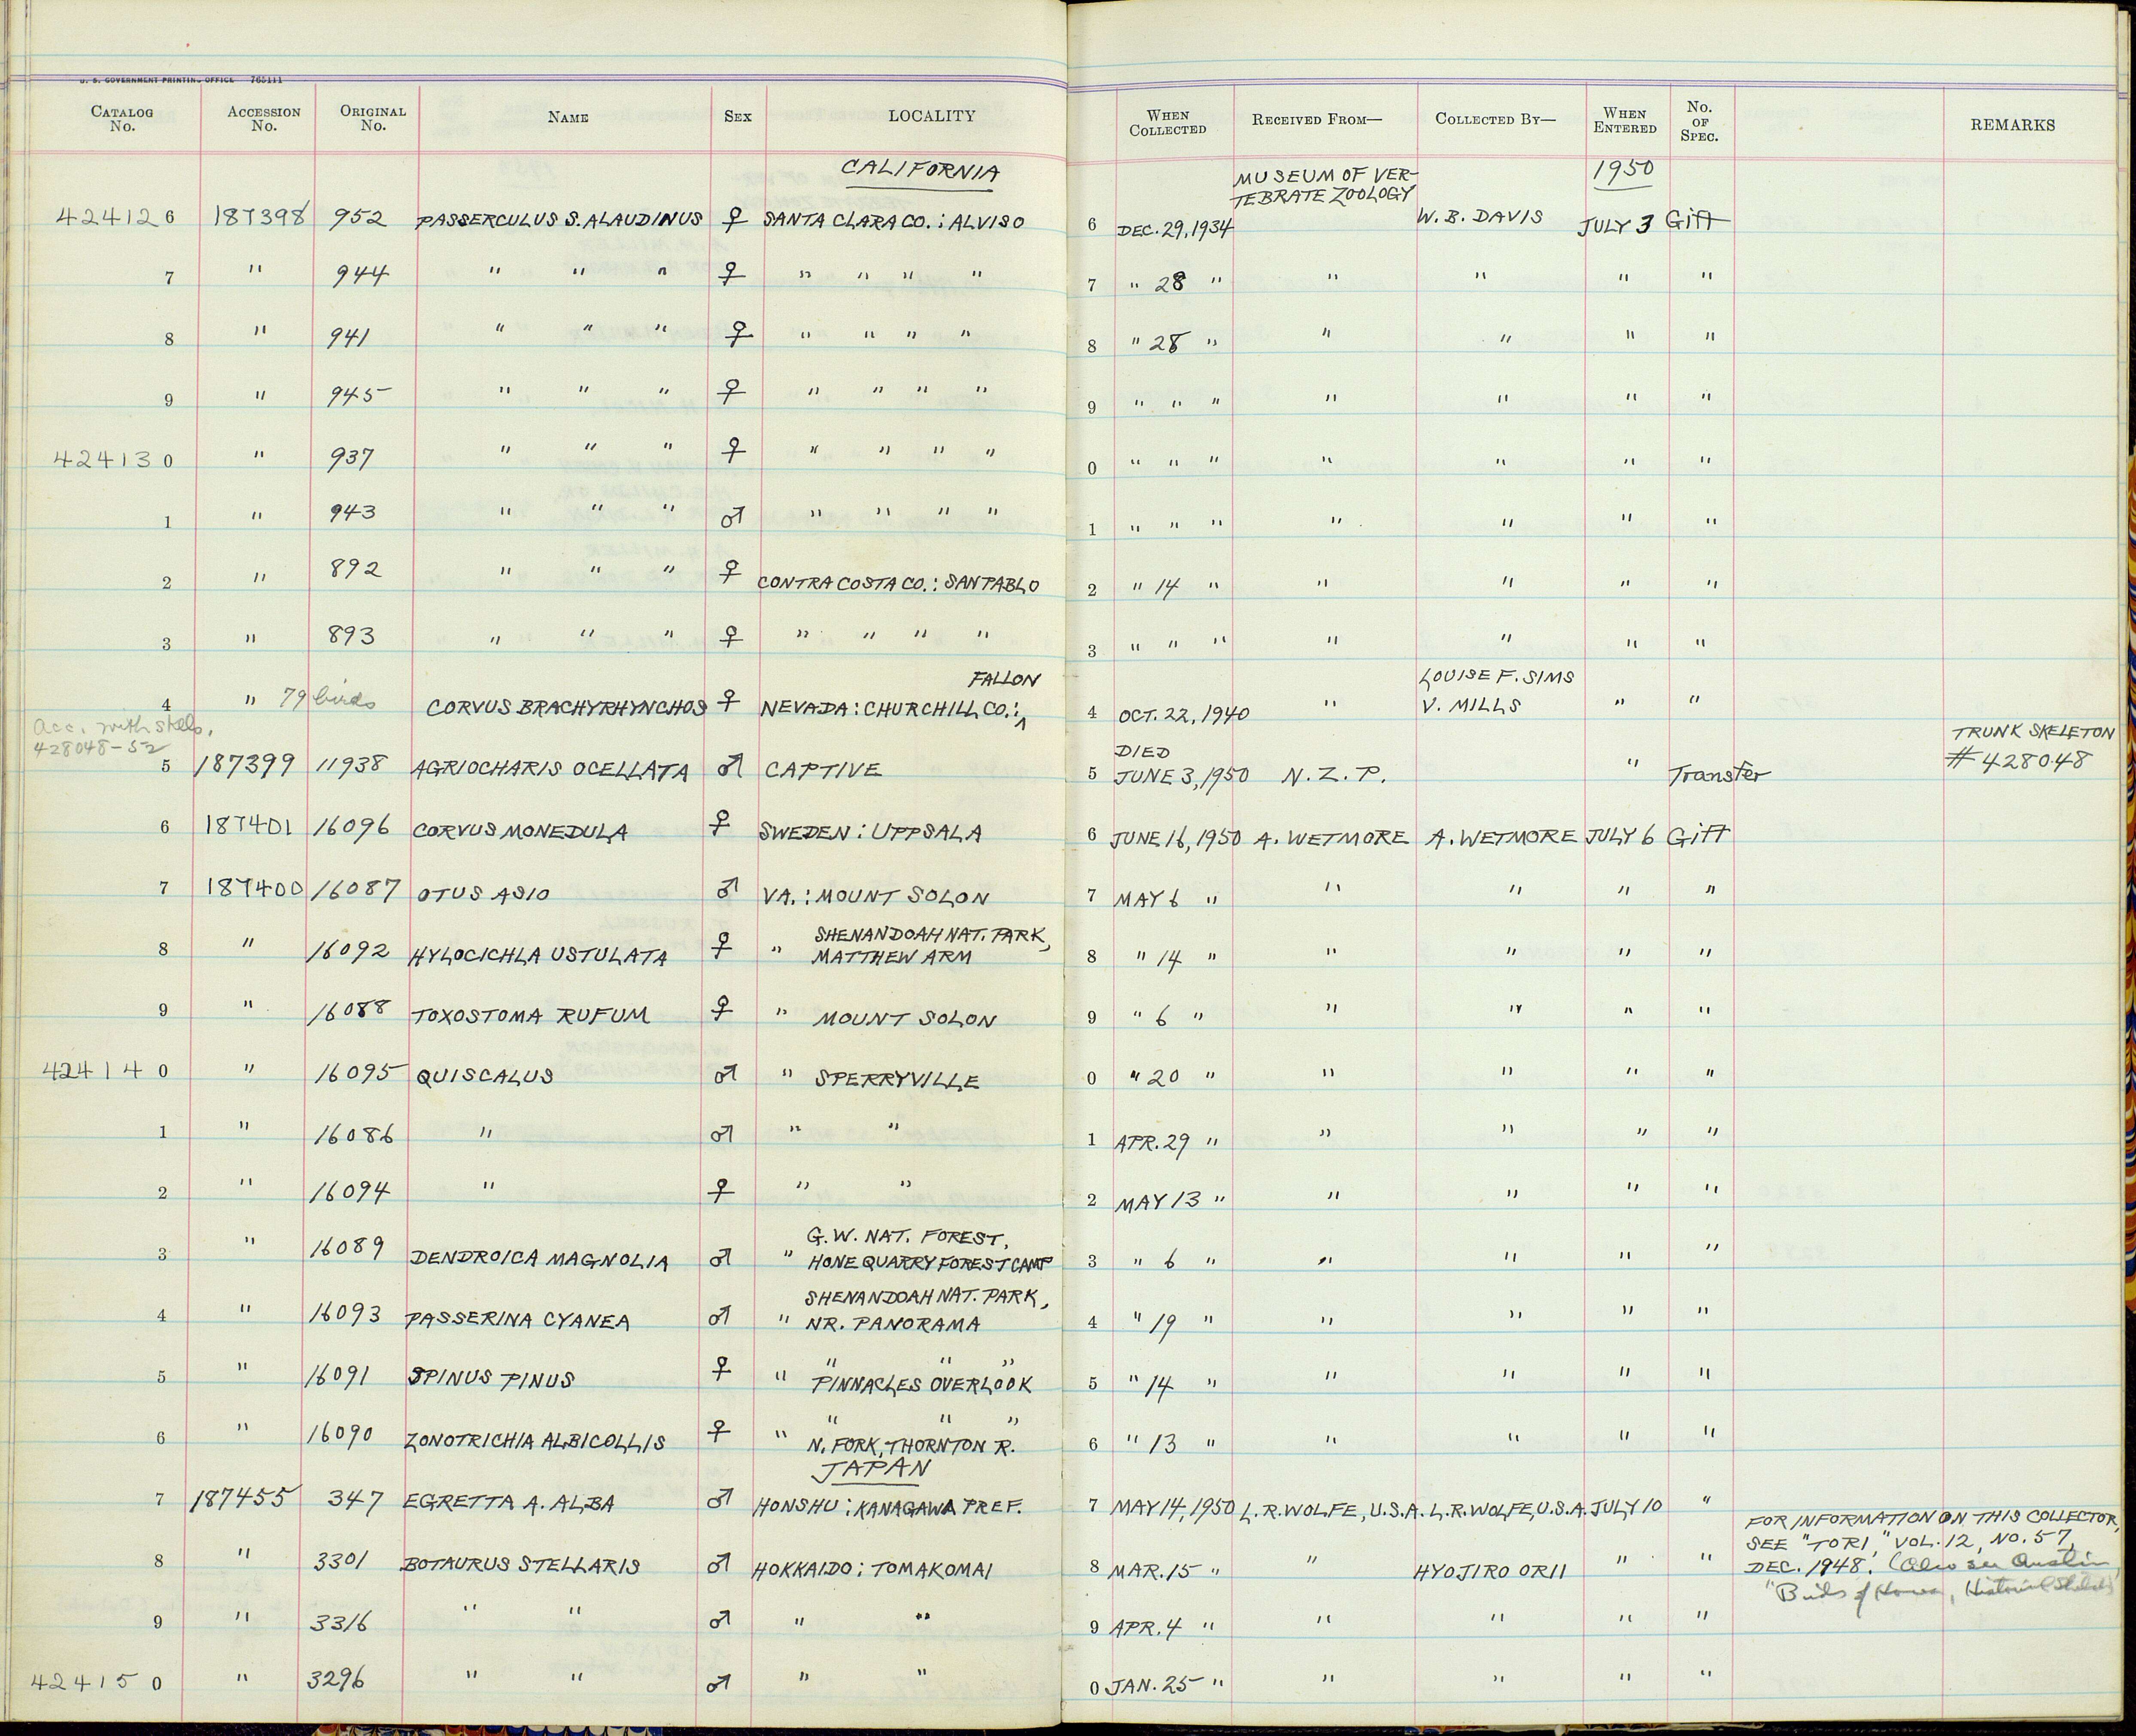 U. S. GOVERNMENT PRINTING OFFICE 765111
CATALOG No. ACCESSION No. ORIGINAL No. NAME SEX LOCALITY WHEN COLLECTED RECEIVED FROM— COLLECTED BY— WHEN ENTERED No. OF SPEC. REMARKS
CALIFORNIA MUSEUM OF VER- 1950
TEBRATE ZOOLOGY
424126 187398 952 PASSERCULUS S. ALAUDINUS ♀ SANTA CLARA CO.: ALVISO 6 DEC. 29, 1934 W. B. DAVIS JULY 3 Gift
7 " 944 " " " ♀ " " " " 7 " 28 " " " " "
8 " 941 " " " ♀ " " " " 8 " 28 " " " " "
9 " 945 " " " ♀ " " " " 9 " " " " " " "
424130 " 937 " " " ♀ " " " " 0 " " " " " " "
1 " 943 " " " ♂ " " " " 1 " " " " " " "
2 " 892 " " " ♀ CONTRA COSTA CO.: SAN PABLO 2 " 14 " " " " "
3 " 893 " " " ♀ " " " " 3 " " " " " " "
FALLON LOUISE F. SIMS
4 " 79 birds CORVUS BRACHYRHYNCHOS ♀ NEVADA: CHURCHILL CO.: 4 OCT. 22, 1940 " V. MILLS " "
acc. with skels.
428048-52
DIED TRUNK SKELETON
5 187399 11938 AGRIOCHARIS OCELLATA ♂ CAPTIVE 5 JUNE 3, 1950 N. Z. P. " Transfer #428048
6 187401 16096 CORVUS MONEDULA ♀ SWEDEN: UPPSALA 6 JUNE 16, 1950 A. WETMORE A. WETMORE JULY 6 Gift
7 187400 16087 OTUS ASIO ♂ VA.: MOUNT SOLON 7 MAY 6 " " " " "
SHENANDOAH NAT. PARK,
8 " 16092 HYLOCICHLA USTULATA ♀ " MATTHEW ARM 8 " 14 " " " " "
9 " 16088 TOXOSTOMA RUFUM ♀ " MOUNT SOLON 9 " 6 " " " " "
424140 " 16095 QUISCALUS ♂ " SPERRYVILLE 0 " 20 " " " " "
1 " 16086 " ♂ " " 1 APR. 29 " " " " "
2 " 16094 " ♀ " " 2 MAY 13 " " " " "
G. W. NAT. FOREST,
3 " 16089 DENDROICA MAGNOLIA ♂ " HONE QUARRY FOREST CAMP 3 " 6 " " " " "
SHENANDOAH NAT. PARK,
4 " 16093 PASSERINA CYANEA ♂ " NR. PANORAMA 4 " 19 " " " " "
" " "
5 " 16091 SPINUS PINUS ♀ " PINNACLES OVERLOOK 5 " 14 " " " " "
" " "
6 " 16090 ZONOTRICHIA ALBICOLLIS ♀ " N. FORK, THORNTON R. 6 " 13 " " " " "
JAPAN
7 187455 347 EGRETTA A. ALBA ♂ HONSHU: KANAGAWA PREF. 7 MAY 14, 1950 L. R. WOLFE, U.S.A. L. R. WOLFE, U.S.A. JULY 10 "
FOR INFORMATION ON THIS COLLECTOR,
SEE "TORI," VOL. 12, NO. 57,
8 " 3301 BOTAURUS STELLARIS ♂ HOKKAIDO: TOMAKOMAI 8 MAR. 15 " " HYOJIRO ORII " " DEC. 1948. (Also see Austin,
"Birds of Korea, Historical
9 " 3316 " " ♂ " " 9 APR. 4 " " " " "
424150 " 3296 " " ♂ " " 0 JAN. 25 " " " " "